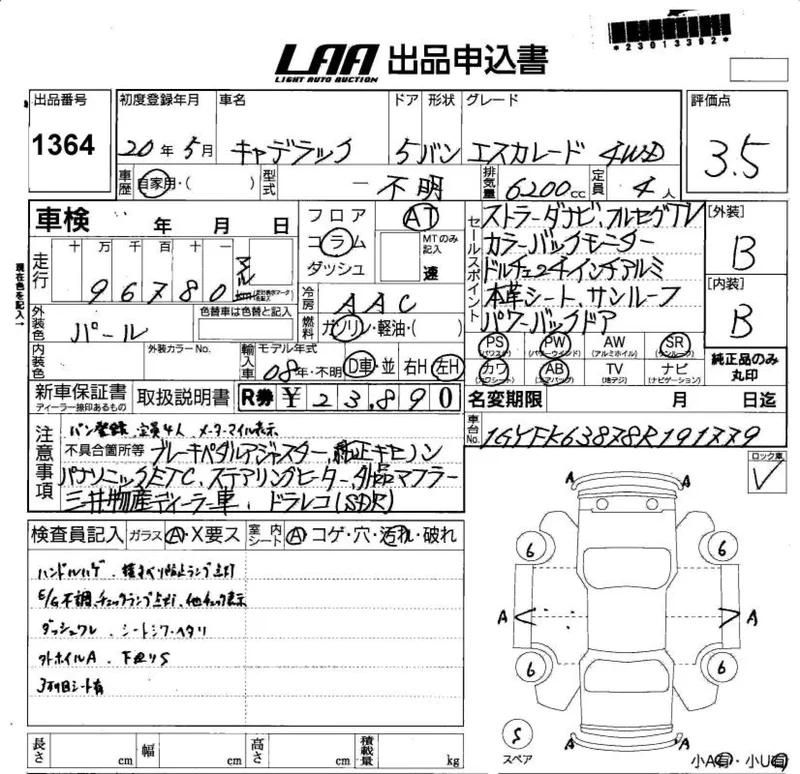 *23013392*
LAA 出品申込書
LIGHT AUTO AUCTION
出品番号
1364
初度登録年月
20年5月
車名
キャデラック
ドア 形状
5 バン
グレード
エスカレード 4WD
評価点
3.5
車歴 自家用・( )
型式
一不明
排気量 6200cc
定員 4人
車検 年 月 日
走行
十 万 千 百 十 一
96780
マイル
km
現在色を記入→
フロア
コラム
ダッシュ
AT
MTのみ記入
速
冷房 AAC
燃料 ガソリン・軽油・( )
外装色 パール
色替車は色替と記入
内装色
外装カラーNo.
輸入車 モデル年式
08年・不明
D車・並
右H 左H
セールスポイント
ストラーダナビ、フルセグTV
カラーバックモニター
ドルチェ24インチアルミ
本革シート、サンルーフ
パワーバックドア
[外装]
B
[内装]
B
PS (パワステ)
PW (パワーウインド)
AW (アルミホイル)
SR (サンルーフ)
カワ (カワシート)
AB (エアバック)
TV (地デジ)
ナビ (ナビゲーション)
純正品のみ丸印
新車保証書
ディーラー捺印あるもの
取扱説明書
R券 ¥ 23,890
名変期限 月 日迄
車台No. 1GYFK63878R191779
注意事項
バン登録、定員4人、メーターマイル表示
不具合箇所等 ブレーキペダルアジャスター、純正キセノン
パナソニックETC、ステアリングヒーター、外品マフラー
三井物産ディーラー車、ドラレコ(SDR)
ロック車
検査員記入
ガラス A・X要ス
室内シート A・コゲ・穴・汚れ・破れ
ハンドルハゲ、横すべり防止ランプ点灯
E/G不調、チェックランプ点灯、他チェック表示
ダッシュワレ、シートシワ・ヘタリ
外ホイルA、下廻りS
3列目シート有
A A
6 6
A A
6 6
A A
S
スペア
長さ cm 幅 cm 高さ cm 積載量 kg
小A有・小U有